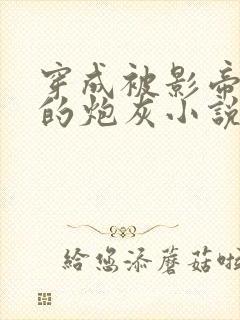 穿成被影帝
的炮灰小說
給您添蘑菇啦